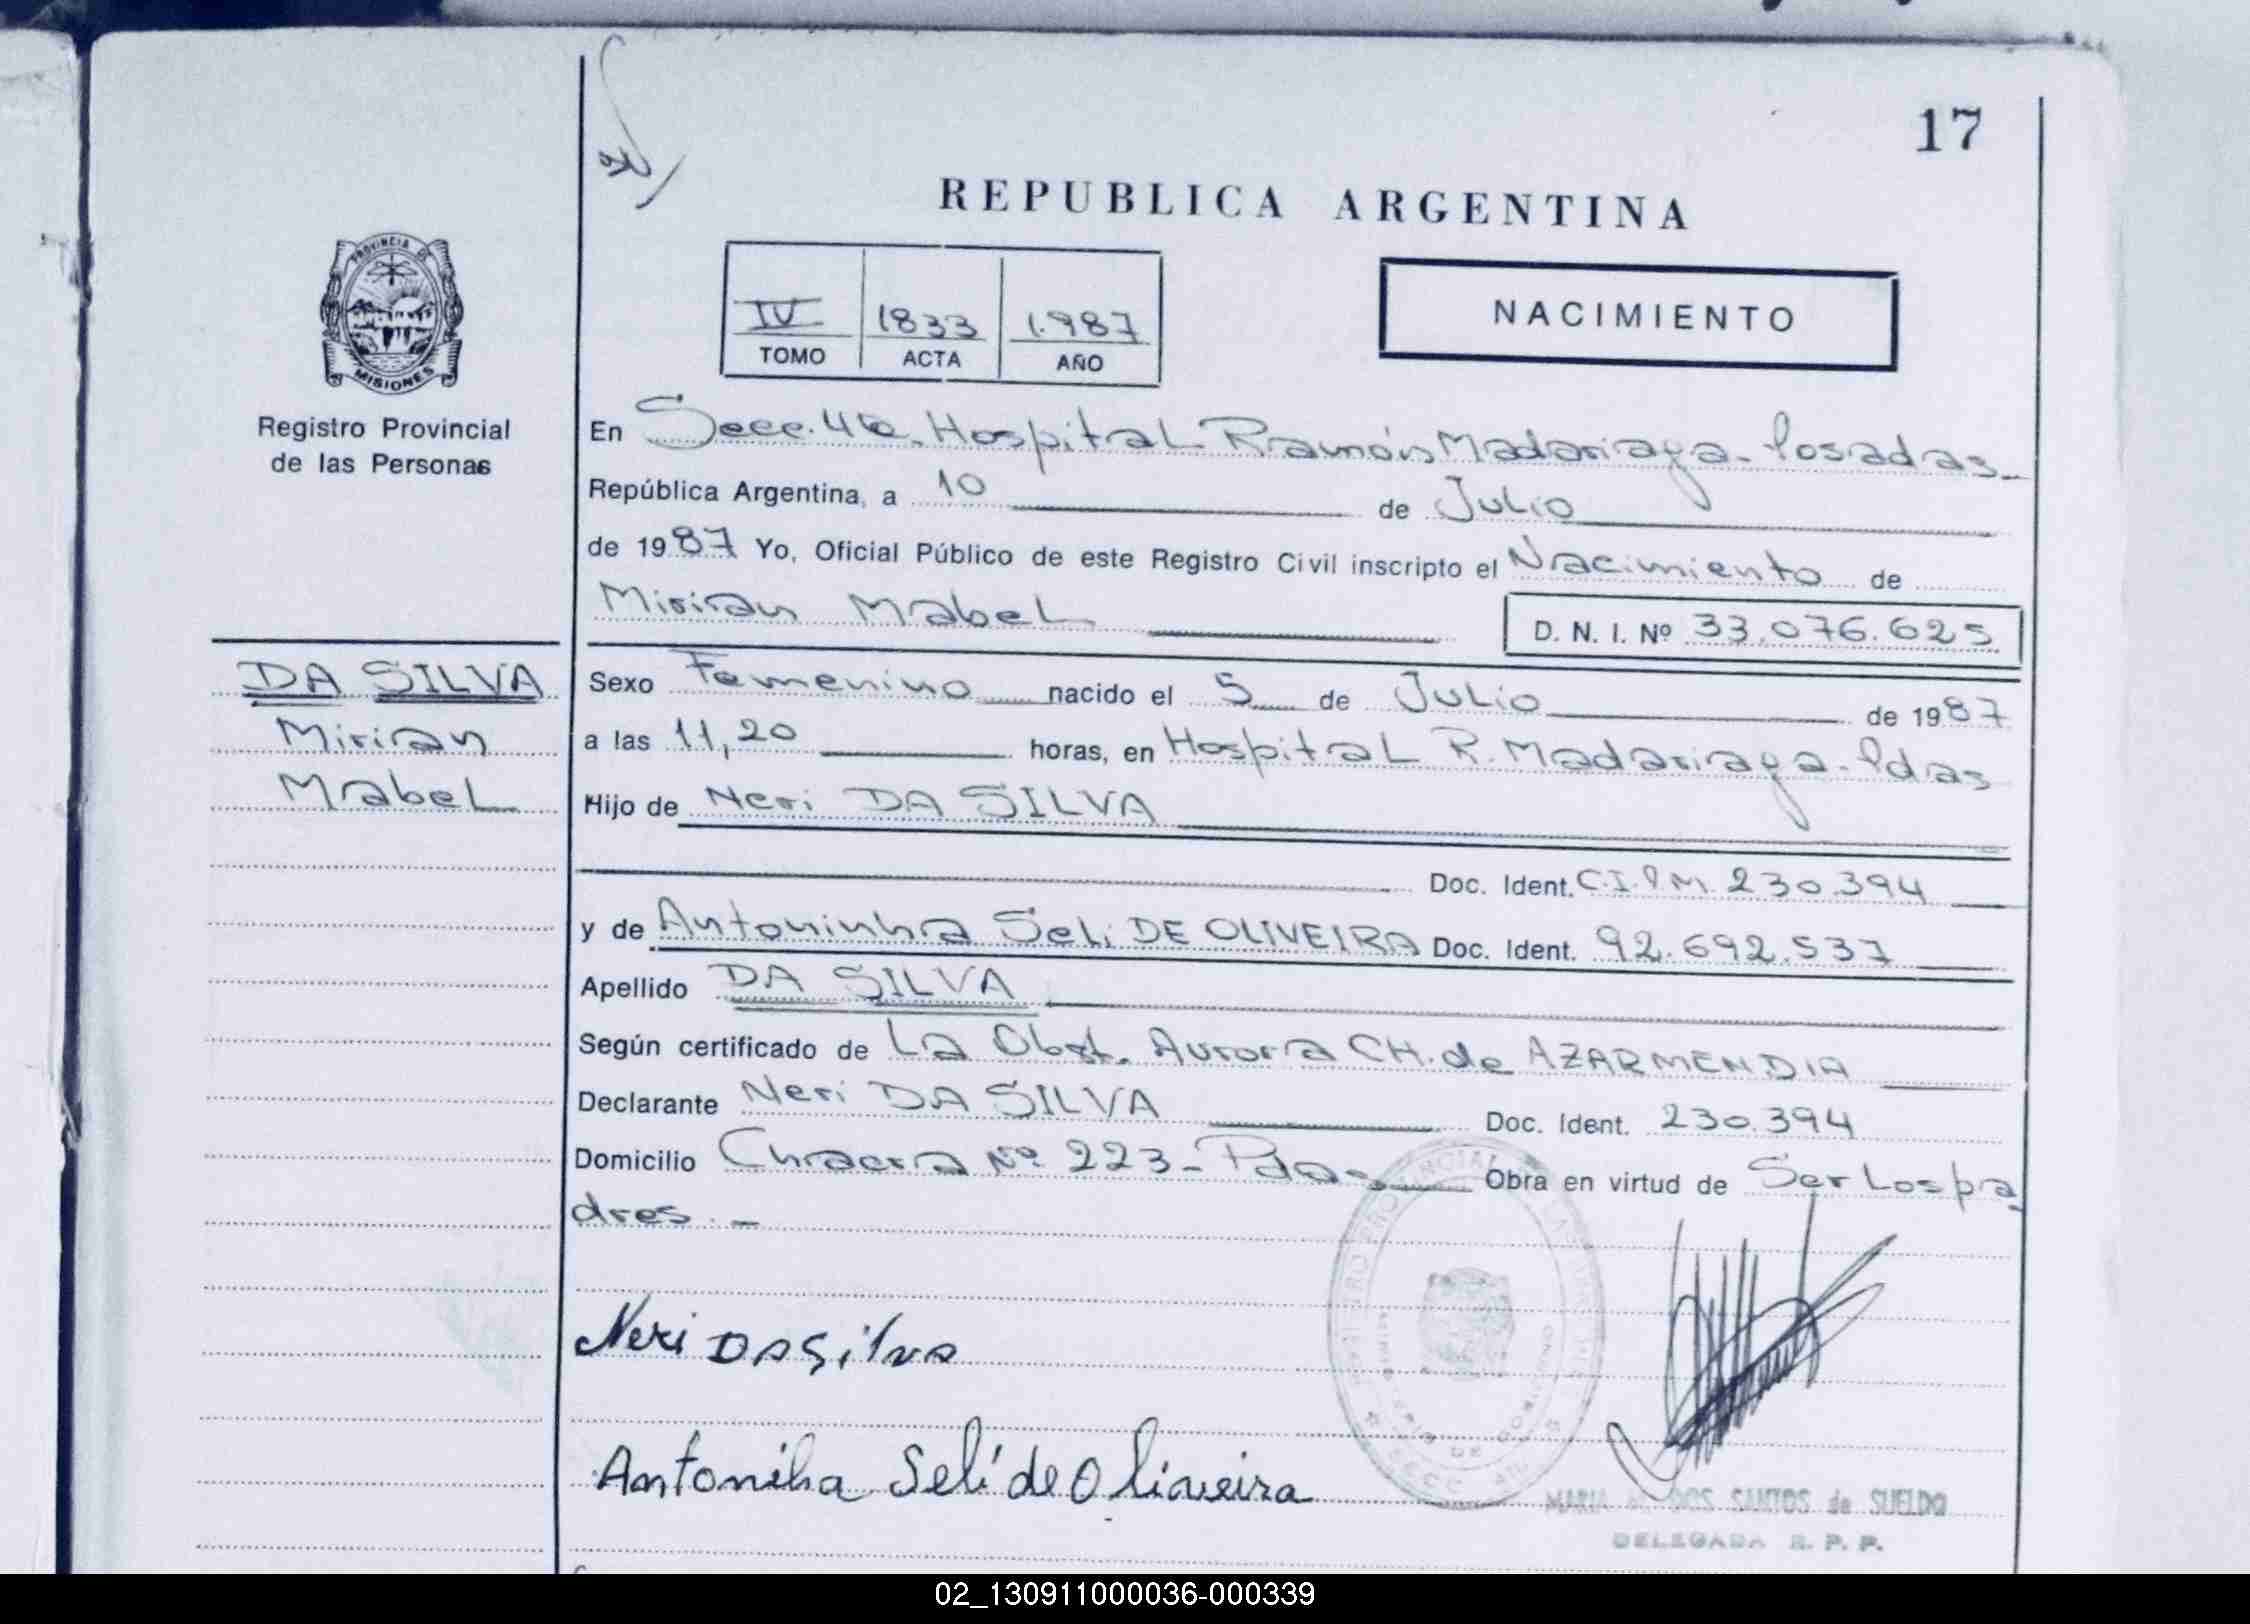 17
REPUBLICA ARGENTINA
PROVINCIA DE
MISIONES
Registro Provincial
de las Personas
IV 1833 1.987
TOMO ACTA AÑO
NACIMIENTO
En Secc. 4ta. Hospital Ramón Madariaga - Posadas -
República Argentina, a 10 de Julio
de 1987 Yo, Oficial Público de este Registro Civil inscripto el Nacimiento de
Mirian Mabel D. N. I. Nº 33.076.625
DA SILVA
Mirian
Mabel
Sexo Femenino nacido el 5 de Julio de 1987
a las 11,20 horas, en Hospital R. Madariaga - Pdas
Hijo de Neri DA SILVA
Doc. Ident. C.I.P.M. 230.394
y de Antoninha Seli DE OLIVEIRA Doc. Ident. 92.692.537
Apellido DA SILVA
Según certificado de La Obst. Aurora CH. de AZARMENDIA
Declarante Neri DA SILVA Doc. Ident. 230.394
Domicilio Chacra Nº 223 - Pdas Obra en virtud de Ser Los pa
dres. -
Neri DA Silva
Antoniha Seli de Oliveira
MARIA DOS SANTOS de SUELDO
DELEGADA R. P. P.
02_130911000036-000339